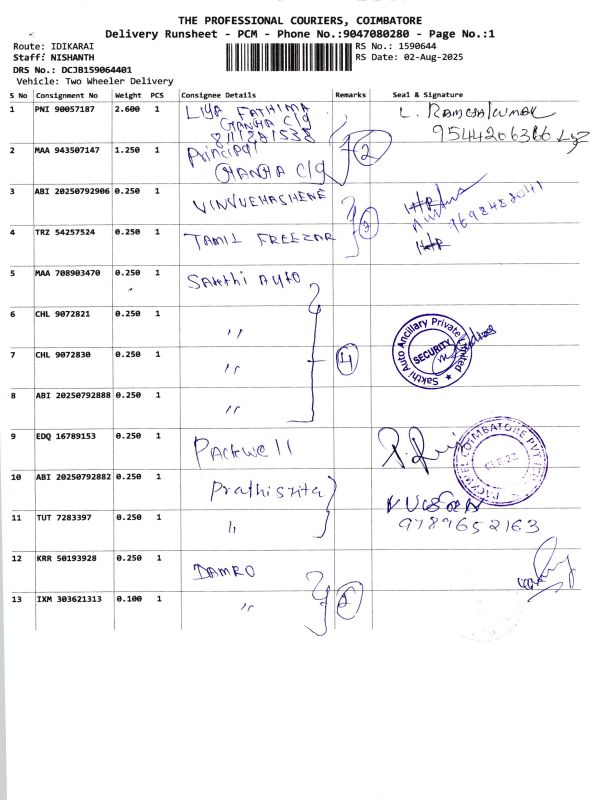 THE PROFESSIONAL COURIERS, COIMBATORE
Delivery Runsheet - PCM - Phone No.:9047080280 - Page No.:1
Route: IDIKARAI
RS No.: 1590644
Staff: NISHANTH
RS Date: 02-Aug-2025
DRS No.: DCJB159064401
Vehicle: Two Wheeler Delivery
S No Consignment No Weight PCS Consignee Details Remarks Seal & Signature
1 PNI 90057187 2.600 1 LIYA FATHIMA
GANGA clg
8111281538
L. RAMESH KUMAR
9544206366
2 MAA 943507147 1.250 1 Principal
GANGA clg
2
3 ABI 20250792906 0.250 1 VINVUEHASHENE
9698482041
4 TRZ 54257524 0.250 1 TAMIL FREEZAR
2
5 MAA 708903470 0.250 1 SAKthi AUtO
6 CHL 9072821 0.250 1 "
7 CHL 9072830 0.250 1 "
4
Sakthi Auto Ancillary Private Limited
SECURITY
8 ABI 20250792888 0.250 1 "
9 EDQ 16789153 0.250 1 PACKWell
COIMBATORE PVT
10 ABI 20250792882 0.250 1 Prathiszita
11 TUT 7283397 0.250 1 "
9789652163
12 KRR 50193928 0.250 1 DAMRO
13 IXM 303621313 0.100 1 "
2